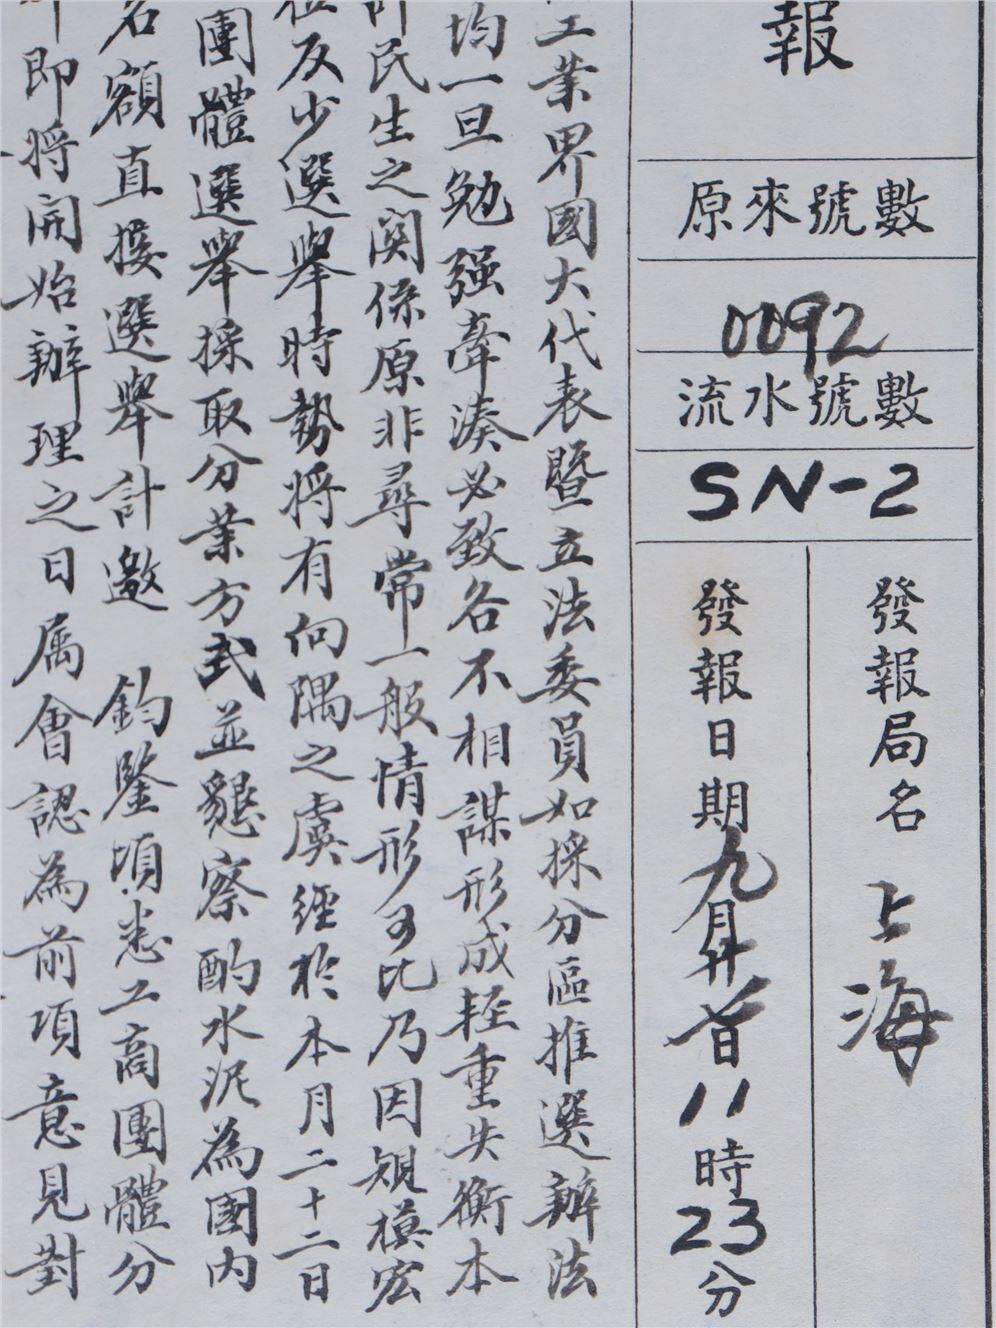 報
原來號數
0092
流水號數
SN-2
發報局名 上海
發報日期 九月廿 日 11時23分
工業界國大代表暨立法委員如採分區推選辦法
均一旦勉强牽湊必致各不相謀形成輕重失衡本
民生之関係原非尋常一般情形可比乃因規模宏
反少選舉時勢將有向隅之虞經於本月二十二日
團體選舉採取分業方式並懇察酌水泥為國內
名額直接選舉計邀 鈞鑒頃悉工商團體分
即將開始辦理之日属會認為前項意見對